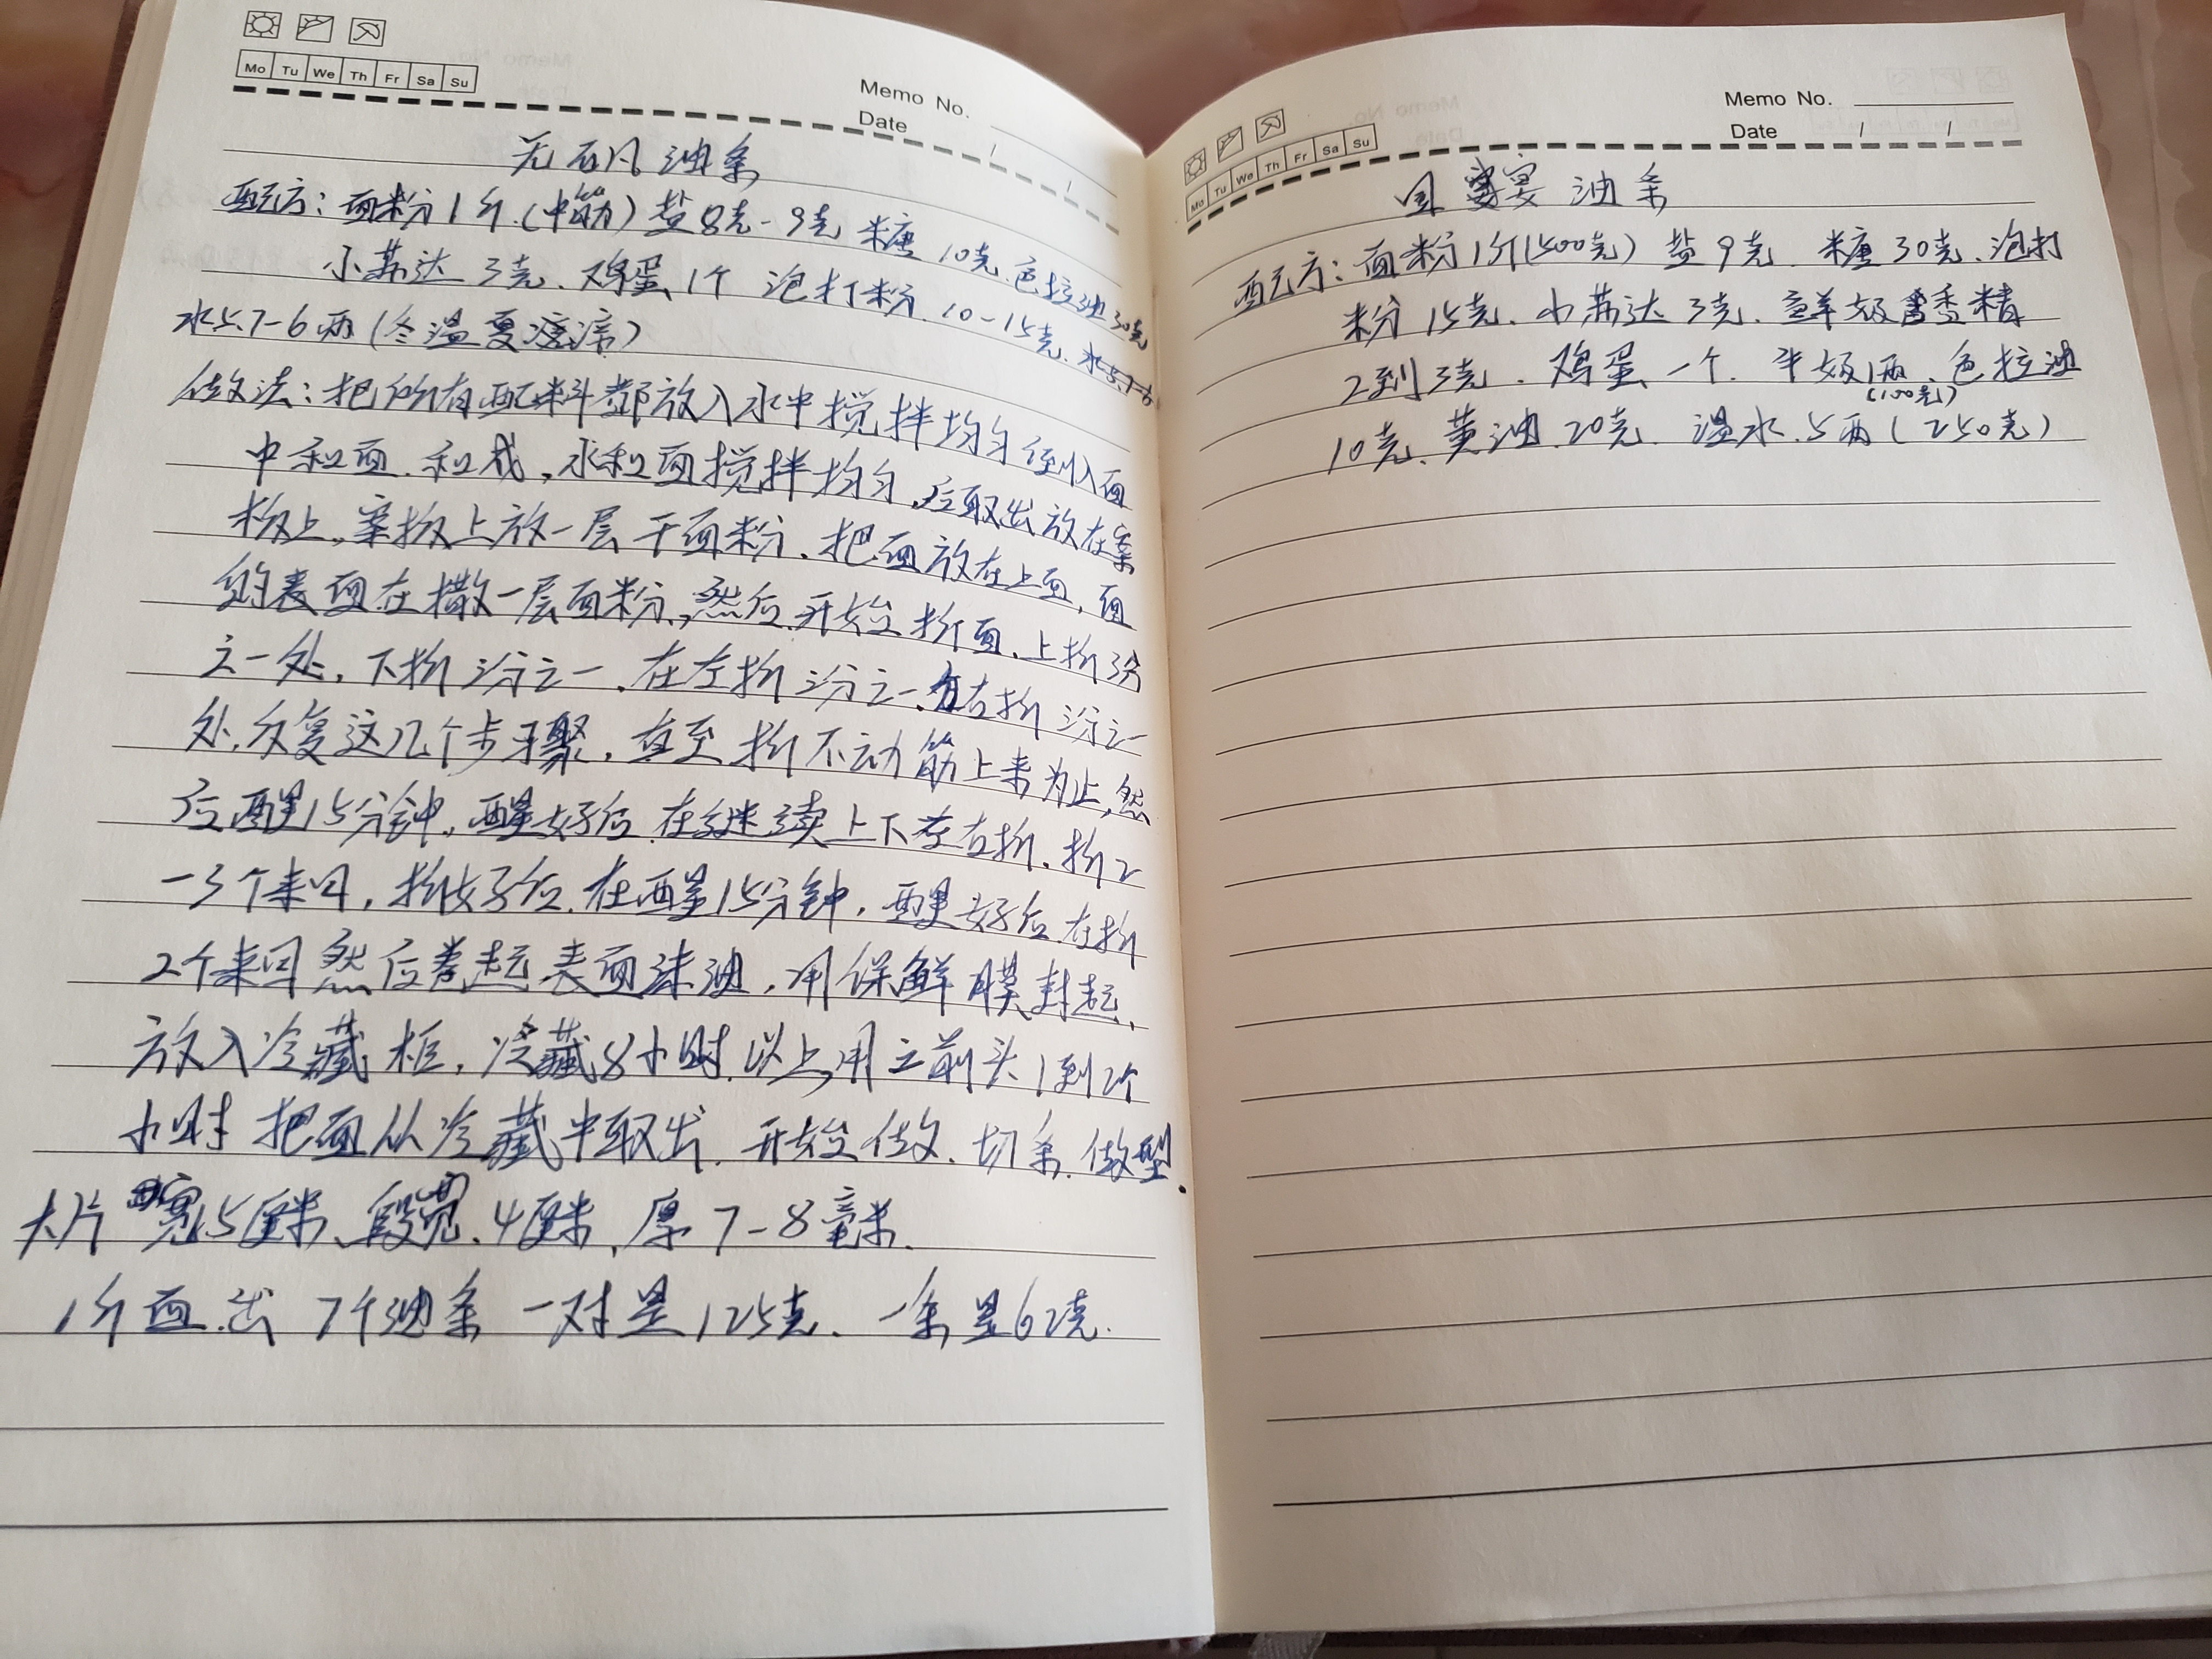 Mo Tu We Th Fr Sa Su
Memo No.
Date / /
无矾油条
配方：面粉1斤.(中筋)盐8克-9克 糖10克.色拉油30克
小苏达3克.鸡蛋1个 泡打粉.10-15克.水5.7-6
水5.7-6两(冬温夏凉)
做法：把所有配料都放入水中搅拌均匀倒入面
中和面.和成,水和面搅拌均匀,后取出放在案
板上,案板上放一层干面粉.把面放在上面,面
的表面在撒一层面粉,然后开始折面.上折3分
之一处,下折3分之一.在左折3分之一.右折3分之一
处,反复这几个步骤,直至折不动筋上来为止,然
后醒15分钟,醒好后在继续上下左右折.折2
-3个来回,折好后.在醒15分钟,醒好后在折
2个来回然后卷起表面抹油,用保鲜膜封起,
放入冷藏柜,冷藏8小时.以上,用之前头1到2个
小时把面从冷藏中取出.开始做.切条.做型.
大片宽15厘米、段宽.4厘米,厚7-8毫米.
1斤面.出7个油条 一对是125克.一条是62克.
Mo Tu We Th Fr Sa Su
Memo No.
Date / /
国宴油条
配方：面粉1斤(500克)盐9克.糖30克.泡打
粉15克.小苏达3克.鲜奶香精
2到3克.鸡蛋一个.牛奶1两.色拉油
(100克)
10克.黄油.20克.温水.5两(250克)